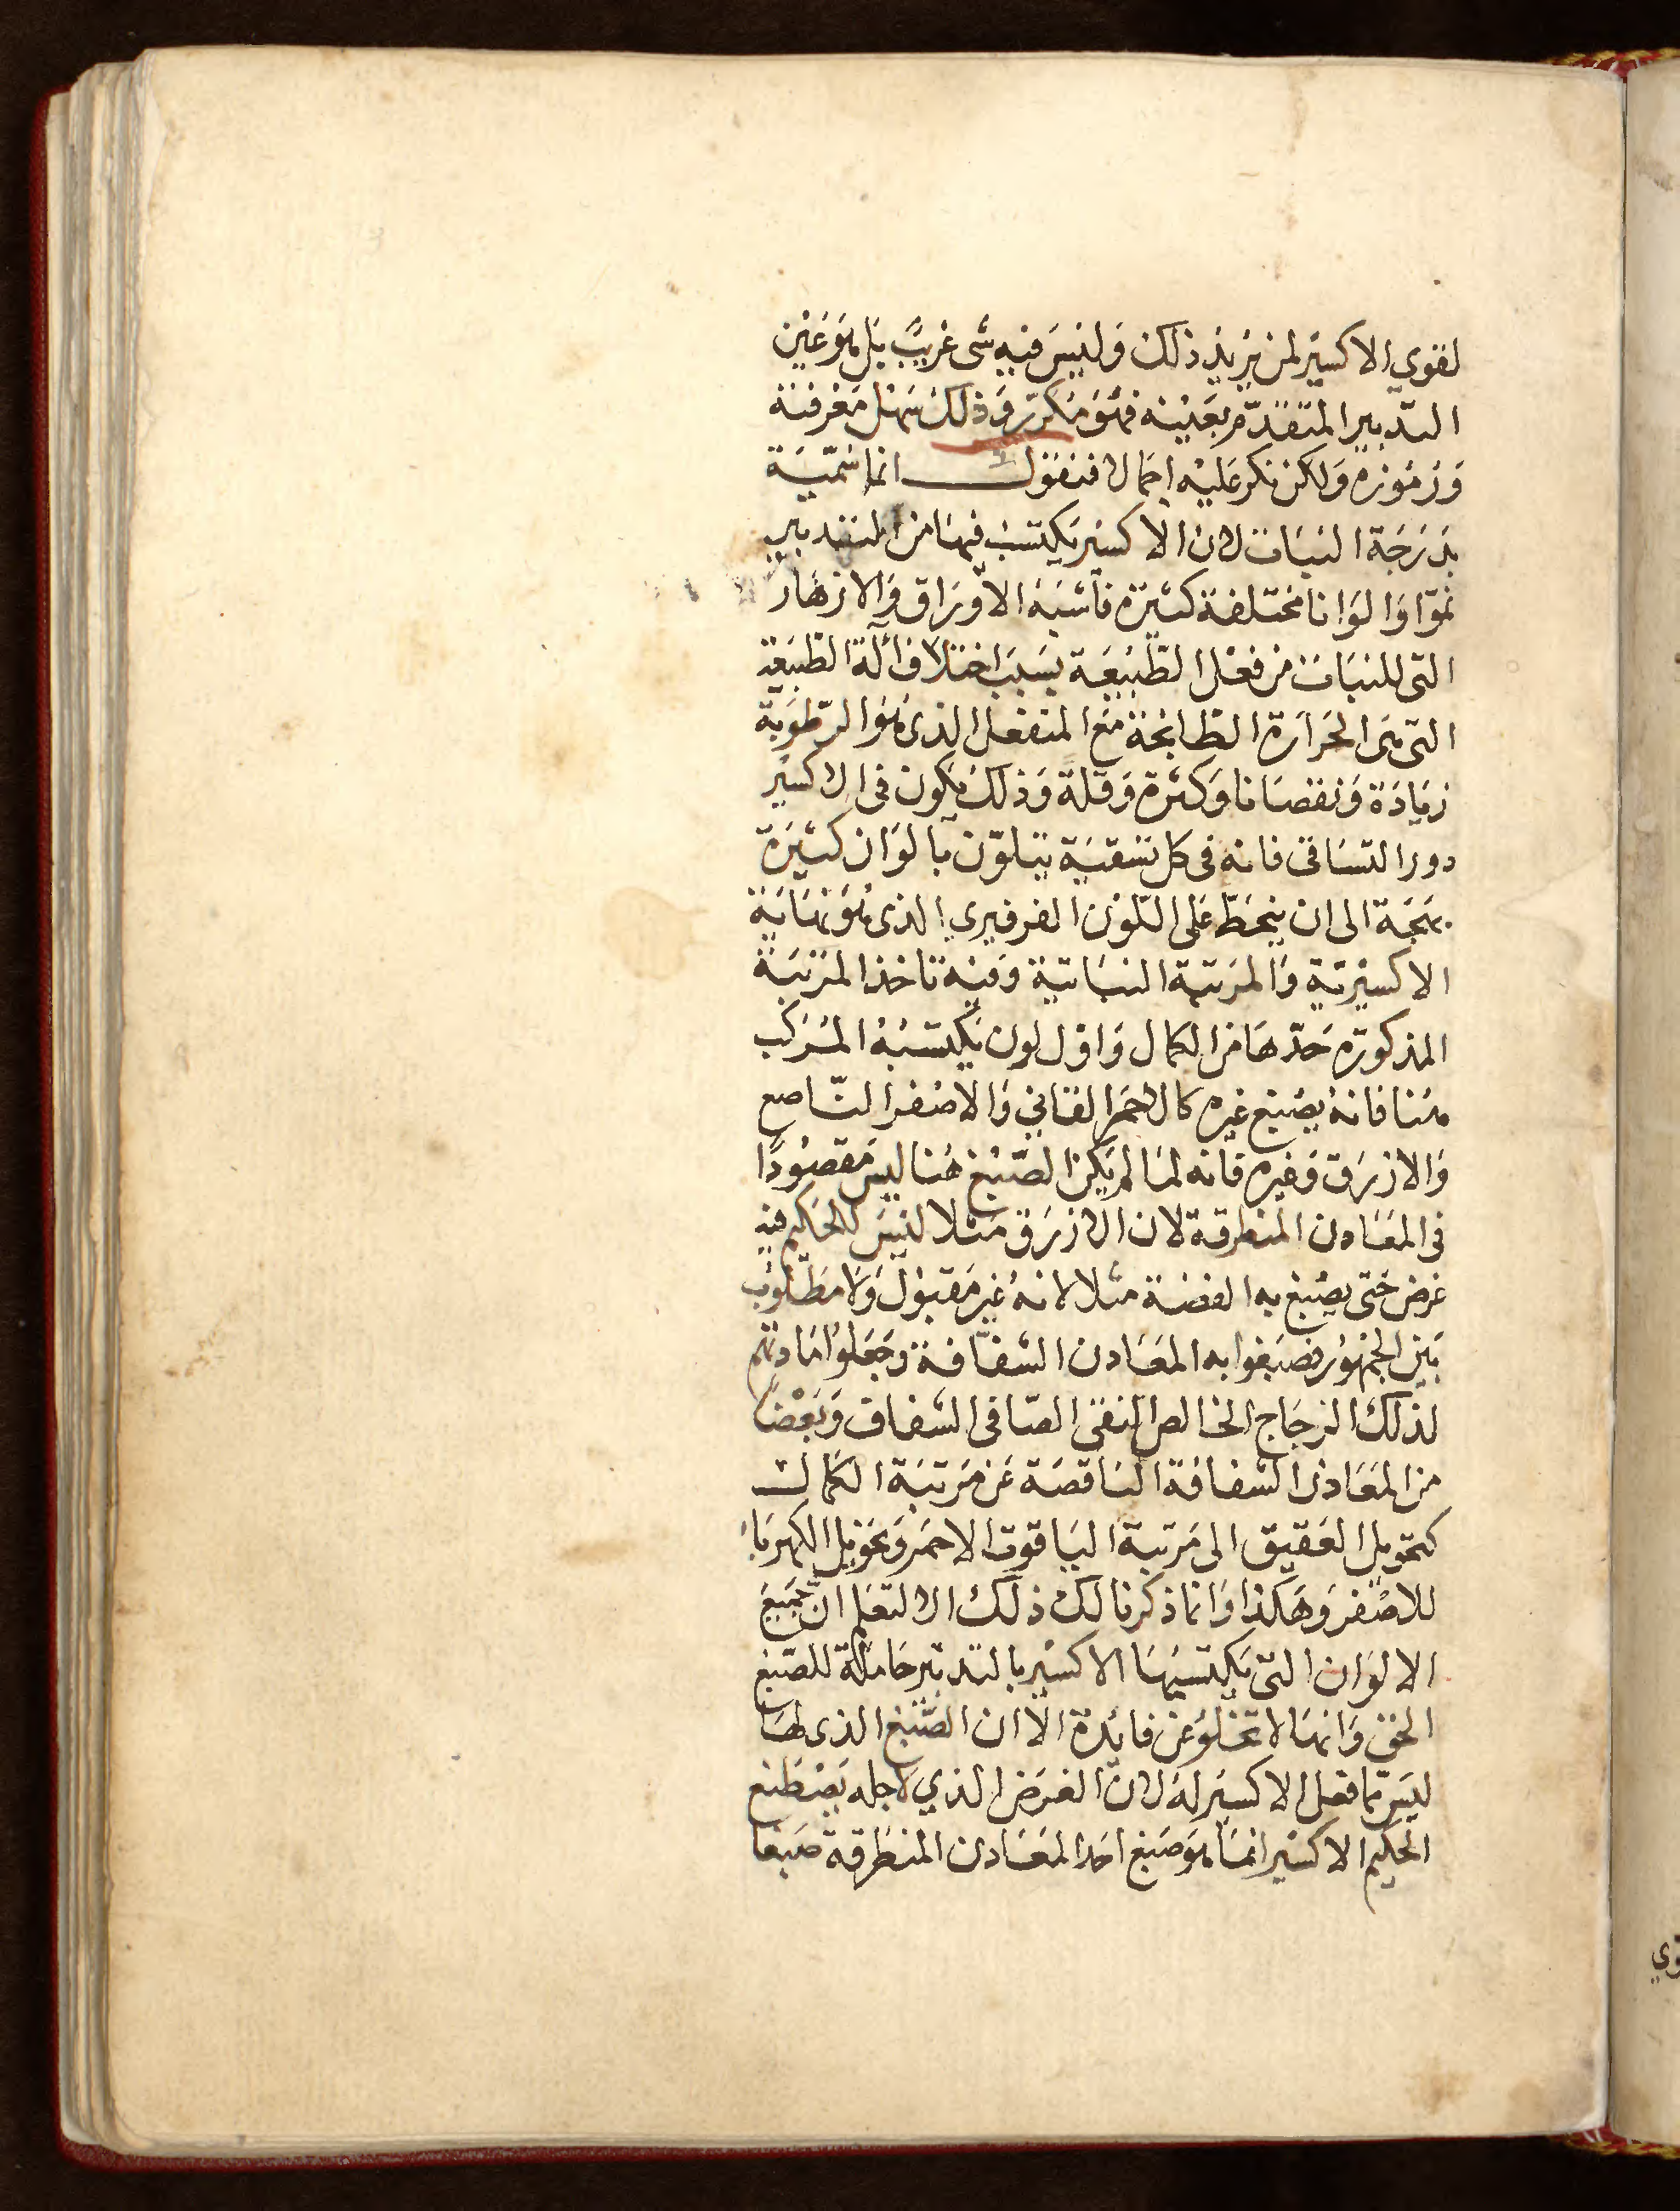 لقوي الاكسير لمن يريد ذلك وليس فيه شى غريب بل هو عين
التدبير المتقدّم بعينه فهو مكرّر وذلك سهل معرفته
ورموزه ولكن نكر عليه اجمالا فنقول انما سميّة
بدرجة النبات لان الاكسير يكتسب فيها من التدبير
نموّا والوانا مختلفة كثيرة فاشبه الاوراق والازهار
التى للنبات من فعل الطّبيعة بسبب اختلاف آلة الطبيعة
التى هى الحرارة الطابخة مع المنفعل الذى هو الرّطوبة
زيادة ونقصانا وكثرة وقلة وذلك يكون فى الاكسير
دور التساقى فانه فى كل تسقية يتلوّن بالوان كثيرة
بهجة الى ان ينحطّ على اللّون الفرفيري الذى هو نهاية
الاكسيريّة والمرتبة النباتية وفيه تاخذ المرتبة
المذكورة حدّها من الكمال واوّل لون يكتسبه المركب
هنا فانه يصبغ غيره كالاحمر القانى والاصفر النّاصع
والازرق وغيره فانه لما لم يكن الصّبغ هنا ليس مقصودًا
فى المعادن المنطرقة لان الازرق مثلا ليس للحكيم فيه
غرض حتى يصبغ به الفضة مثلا لانه غير مقبول ولا مطلوب
بين الجمهور فصبغوا به المعادن الشفّافة وجعلوا مادتهم
لذلك الزجاج الخالص النقى الصّافى الشفاف وبعضا
من المعادن الشفافة الناقصة عن مرتبة الكمال
كتحويل العقيق الى مرتبة الياقوت الاحمر وتحويل الكهربا
للاصفر وهكذا وانما ذكرنا لك ذلك الا لتعلم انّ جميع
الالوان التى يكتسبها الاكسير بالتدبير حاملة للصّبغ
الحق وانها لا تخلو عن فائدة الا ان الصّبغ الذى لها
ليس ممّا فعل الاكسير له لانّ الغرض الذي لاجله يصطنع
الحكيم الاكسير انما هو صبغ احد المعادن المنطرقة صبغا
وي